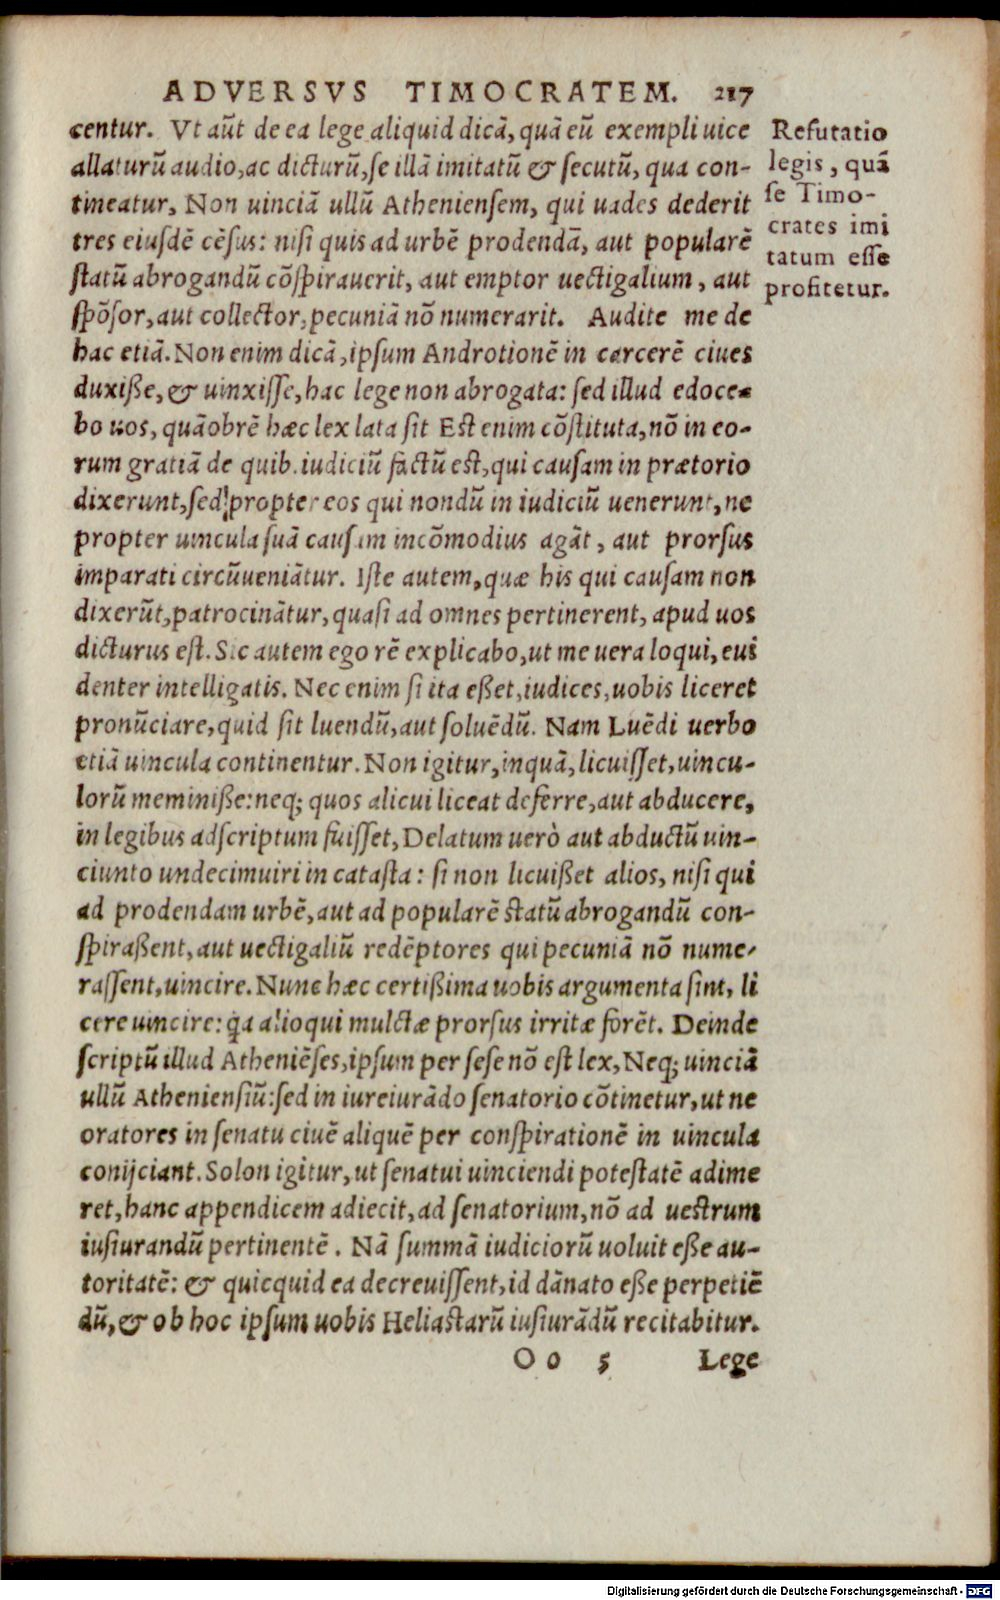 ADVERSVS TIMOCRATEM. 217
centur. Vt aūt de ea lege aliquid dicā, quā eū exempli uice
allaturū audio, ac dicturū, se illā imitatū & secutū, qua con-
tineatur, Non uinciā ullū Atheniensem, qui uades dederit
tres eiusdē cēsus: nisi quis ad urbē prodendā, aut popularē
statū abrogandū cōspirauerit, aut emptor uectigalium, aut
spōsor, aut collector, pecuniā nō numerarit. Audite me de
hac etiā. Non enim dicā, ipsum Androtionē in carcerē ciues
duxiße, & uinxisse, hac lege non abrogata: sed illud edoce-
bo uos, quāobrē hæc lex lata sit Est enim cōstituta, nō in eo-
rum gratiā de quib. iudiciū factū est, qui causam in prætorio
dixerunt, sed propter eos qui nondū in iudiciū uenerunt, ne
propter uincula suā causam incōmodius agāt, aut prorsus
imparati circūueniātur. Iste autem, quæ his qui causam non
dixerūt, patrocinātur, quasi ad omnes pertinerent, apud uos
dicturus est. Sic autem ego rē explicabo, ut me uera loqui, eui
denter intelligatis. Nec enim si ita eßet, iudices, uobis liceret
pronūciare, quid sit luendū, aut soluēdū. Nam Luēdi uerbo
etiā uincula continentur. Non igitur, inquā, licuisset, uincu-
lorū meminiße: neq; quos alicui liceat deferre, aut abducere,
in legibus adscriptum fuisset, Delatum uerò aut abductū uin-
ciunto undecimuiri in catasta: si non licuißet alios, nisi qui
ad prodendam urbē, aut ad popularē statū abrogandū con-
spiraßent, aut uectigaliū redēptores qui pecuniā nō nume-
rassent, uincire. Nunc hæc certißima uobis argumenta sint, li
cere uincire: q̄a alioqui mulctæ prorsus irritæ forēt. Deinde
scriptū illud Atheniēses, ipsum per sese nō est lex, Neq; uinciā
ullū Atheniensiū: sed in iureiurādo senatorio cōtinetur, ut ne
oratores in senatu ciuē aliquē per conspirationē in uincula
conijciant. Solon igitur, ut senatui uinciendi potestatē adime
ret, hanc appendicem adiecit, ad senatorium, nō ad uestrum
iusiurandū pertinentē. Nā summā iudiciorū uoluit eße au-
toritatē: & quicquid ea decreuissent, id dānato eße perpetiē
dū, & ob hoc ipsum uobis Heliastarū iusiurādū recitabitur.
Oo 5 Lege
Refutatio
legis, quā
se Timo-
crates imi
tatum esse
profitetur.
Digitalisierung gefördert durch die Deutsche Forschungsgemeinschaft - DFG